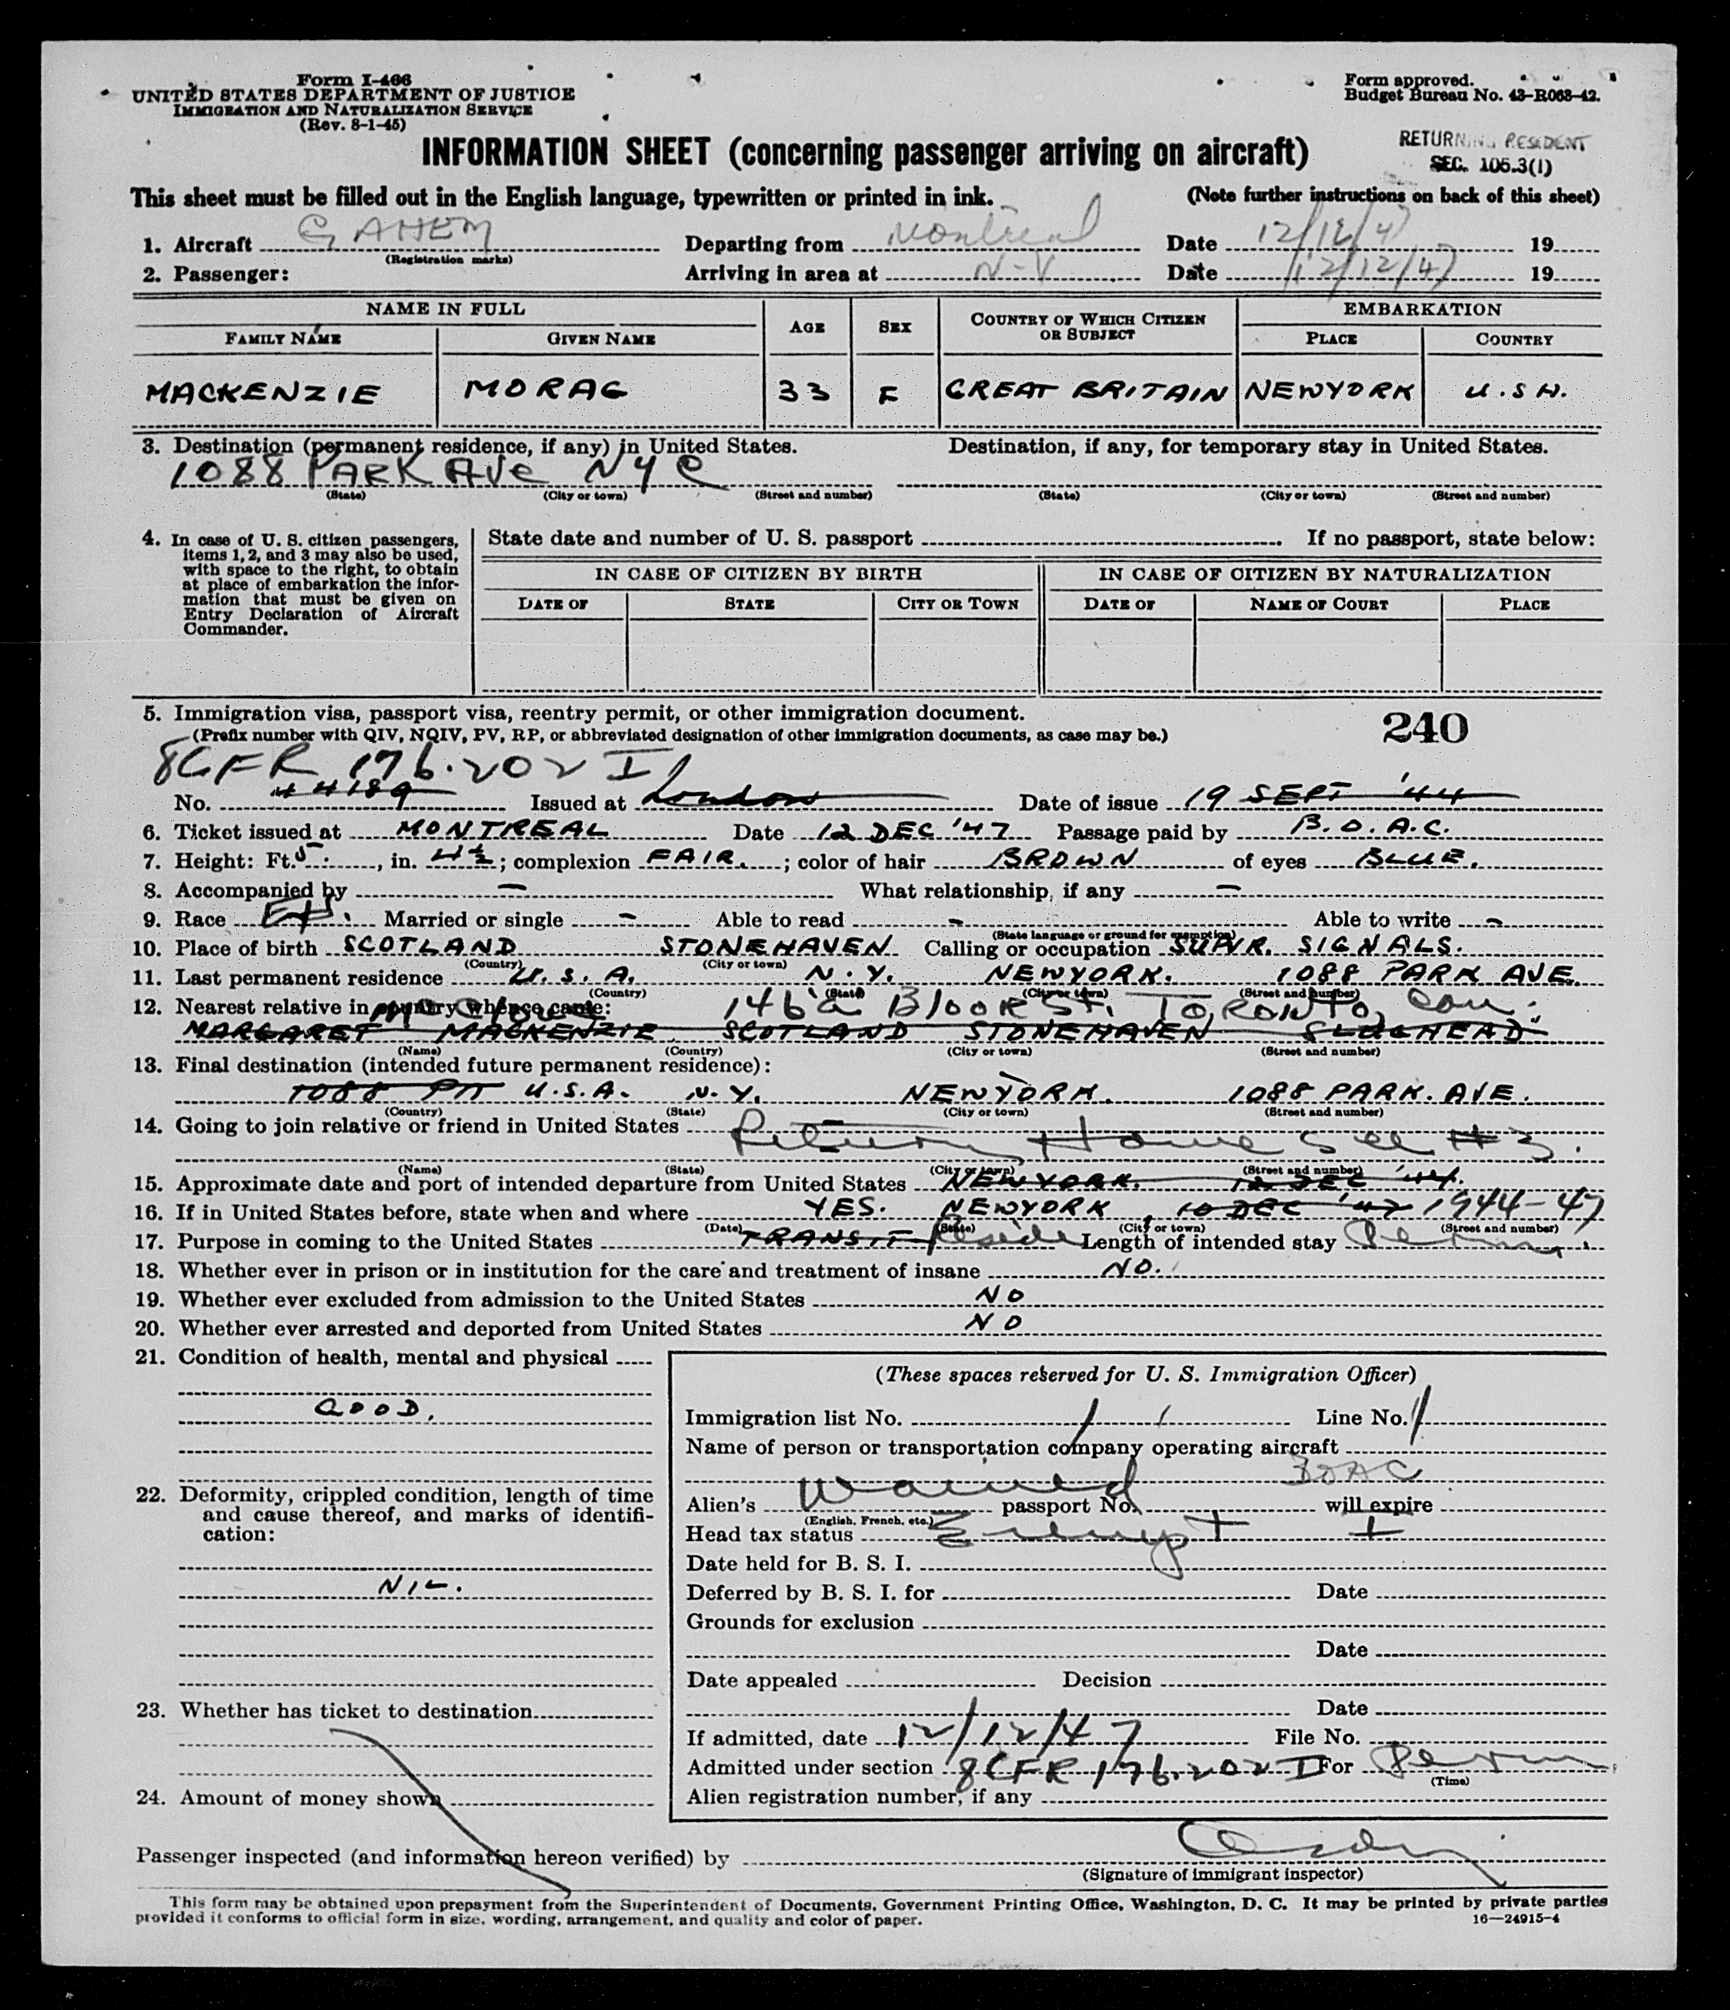 Form I-466
UNITED STATES DEPARTMENT OF JUSTICE
IMMIGRATION AND NATURALIZATION SERVICE
(Rev. 8-1-45)
Form approved.
Budget Bureau No. 43-R068-42.
INFORMATION SHEET (concerning passenger arriving on aircraft)
RETURNING RESIDENT
SEC. 105.3(1)
This sheet must be filled out in the English language, typewritten or printed in ink. (Note further instructions on back of this sheet)
1. Aircraft G AHEM Departing from Montreal Date 12/12/47 19
(Registration marks)
2. Passenger: Arriving in area at N-Y Date 12/12/47 19
NAME IN FULL AGE SEX COUNTRY OF WHICH CITIZEN OR SUBJECT EMBARKATION
FAMILY NAME GIVEN NAME PLACE COUNTRY
MACKENZIE MORAG 33 F GREAT BRITAIN NEWYORK U.S.A.
3. Destination (permanent residence, if any) in United States. Destination, if any, for temporary stay in United States.
1088 PARK AVe NYC
(State) (City or town) (Street and number) (State) (City or town) (Street and number)
4. In case of U. S. citizen passengers, items 1, 2, and 3 may also be used, with space to the right, to obtain at place of embarkation the information that must be given on Entry Declaration of Aircraft Commander.
State date and number of U. S. passport If no passport, state below:
IN CASE OF CITIZEN BY BIRTH IN CASE OF CITIZEN BY NATURALIZATION
DATE OF STATE CITY OR TOWN DATE OF NAME OF COURT PLACE
5. Immigration visa, passport visa, reentry permit, or other immigration document.
(Prefix number with QIV, NQIV, PV, RP, or abbreviated designation of other immigration documents, as case may be.)
240
8CFR 176.202 I
No. 44189 Issued at London Date of issue 19 SEPT '44
6. Ticket issued at MONTREAL Date 12 DEC '47 Passage paid by B.O.A.C.
7. Height: Ft. 5, in. 4½; complexion FAIR.; color of hair BROWN of eyes BLUE.
8. Accompanied by – What relationship, if any –
9. Race Married or single – Able to read – Able to write –
(State language or ground for exemption)
10. Place of birth SCOTLAND STONEHAVEN Calling or occupation SUPVR. SIGNALS.
(Country) (City or town)
11. Last permanent residence U.S.A. N.Y. NEWYORK. 1088 PARK AVE.
(Country) (State) (City or town) (Street and number)
12. Nearest relative in country whence came: 146a Bloor St. Toronto, Can.
MARGARET MACKENZIE SCOTLAND STONEHAVEN SLUGHEAD.
(Name) (Country) (City or town) (Street and number)
13. Final destination (intended future permanent residence):
1088 PA U.S.A. N.Y. NEWYORK. 1088 PARK. AVE.
(Country) (State) (City or town) (Street and number)
14. Going to join relative or friend in United States Return Home See #3.
(Name) (State) (City or town) (Street and number)
15. Approximate date and port of intended departure from United States NEWYORK. 12 DEC '44.
16. If in United States before, state when and where YES. NEWYORK, 10 DEC '47 1944-47
(Date) (State) (City or town) (Street and number)
17. Purpose in coming to the United States TRANSIT Reside Length of intended stay Perm.
18. Whether ever in prison or in institution for the care and treatment of insane NO.
19. Whether ever excluded from admission to the United States NO
20. Whether ever arrested and deported from United States NO
21. Condition of health, mental and physical
GOOD.
22. Deformity, crippled condition, length of time and cause thereof, and marks of identification:
NIL.
23. Whether has ticket to destination
24. Amount of money shown
(These spaces reserved for U. S. Immigration Officer)
Immigration list No. 1 Line No. 1
Name of person or transportation company operating aircraft
BOAC
Alien's Waived passport No. will expire
(English, French, etc.)
Head tax status Exempt
Date held for B. S. I.
Deferred by B. S. I. for Date
Grounds for exclusion
Date
Date appealed Decision
Date
If admitted, date 12/12/47 File No.
Admitted under section 8CFR 176.202 I For Perm
(Time)
Alien registration number, if any
Passenger inspected (and information hereon verified) by
(Signature of immigrant inspector)
This form may be obtained upon prepayment from the Superintendent of Documents, Government Printing Office, Washington, D. C. It may be printed by private parties
provided it conforms to official form in size, wording, arrangement, and quality and color of paper. 16—24915-4